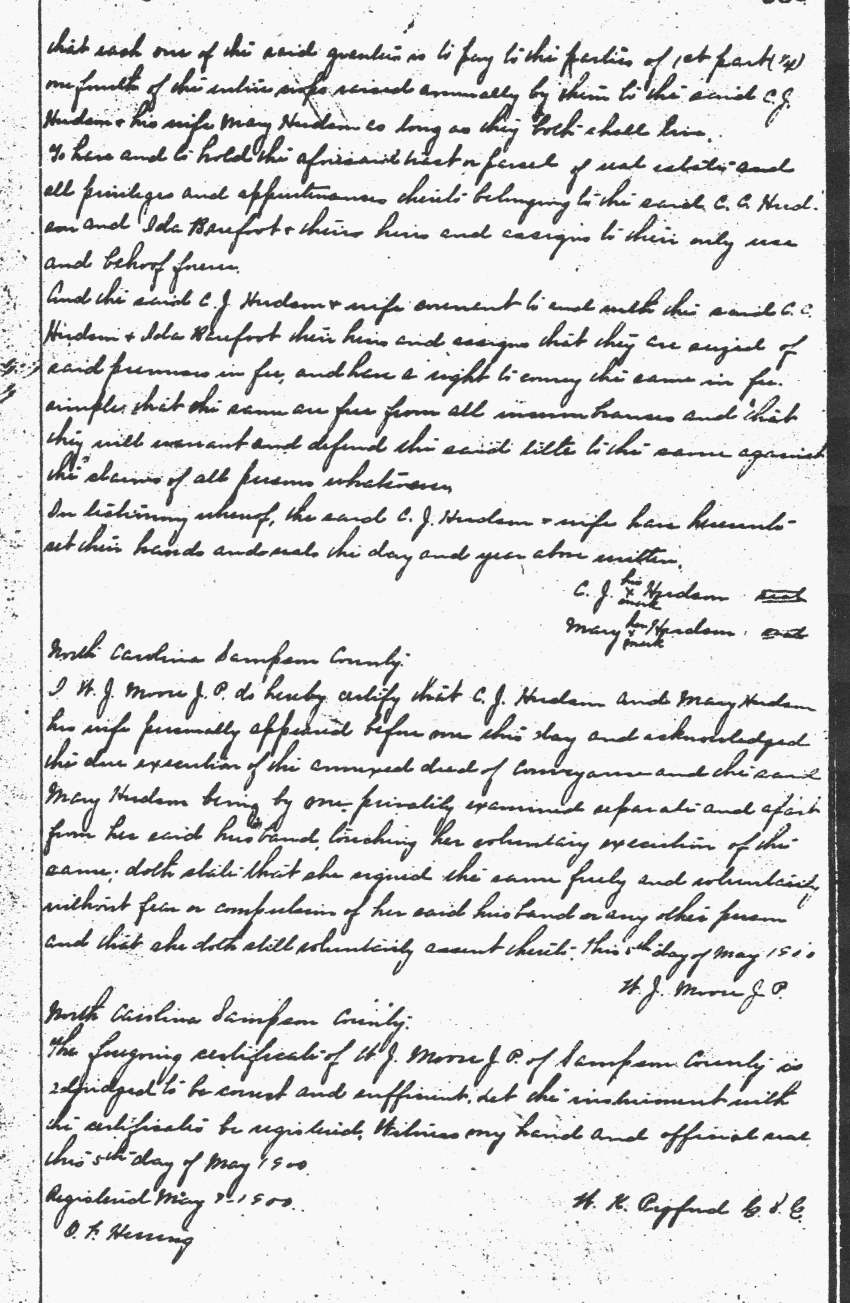 that each one of the said grantees is to pay to the parties of 1st part (1/4)
one fourth of the entire crops raised annually by them to the said C. J.
Hudson & his wife Mary Hudson as long as they both shall live.
To have and to hold the aforesaid tract or parcel of real estate and
all privileges and appurtenances thereto belonging to the said C. C. Hud-
son and Ida Barefoot & theirs heirs and assigns to their only use
and behoof forever.
And the said C. J. Hudson & wife covenant to and with the said C. C.
Hudson & Ida Barefoot their heirs and assigns that they are seized of
said premises in fee, and have a right to convey the same in fee
simple; that the same are free from all and that
they will warrant and defend the said title to the same against
the claims of all persons whatsoever.
In testimony whereof, the said C. J. Hudson & wife have hereunto
set their hands and seals the day and year above written.
C. J. his x mark Hudson seal
Mary her x mark Hudson seal
North Carolina Sampson County.
I W. J. Moore J. P. do hereby certify that C. J. Hudson and Mary Hudson
his wife personally appeared before me this day and acknowledged
the due execution of the annexed deed of conveyance and the said
Mary Hudson being by me privately examined separate and apart
from her said husband, touching her voluntary execution of the
same, doth state that she signed the same freely and voluntarily
without fear or compulsion of her said husband or any other person
and that she doth still voluntarily assent thereto. This 5th day of May 1900
W. J. Moore J. P.
North Carolina Sampson County.
The foregoing certificate of W. J. Moore J. P. of Sampson County is
adjudged to be correct and sufficient. Let the instrument with
the certificates be registered. Witness my hand and official seal
this 5th day of May 1900.
Registered May 1900.
W. K. C. S. C.
O. F. Herring